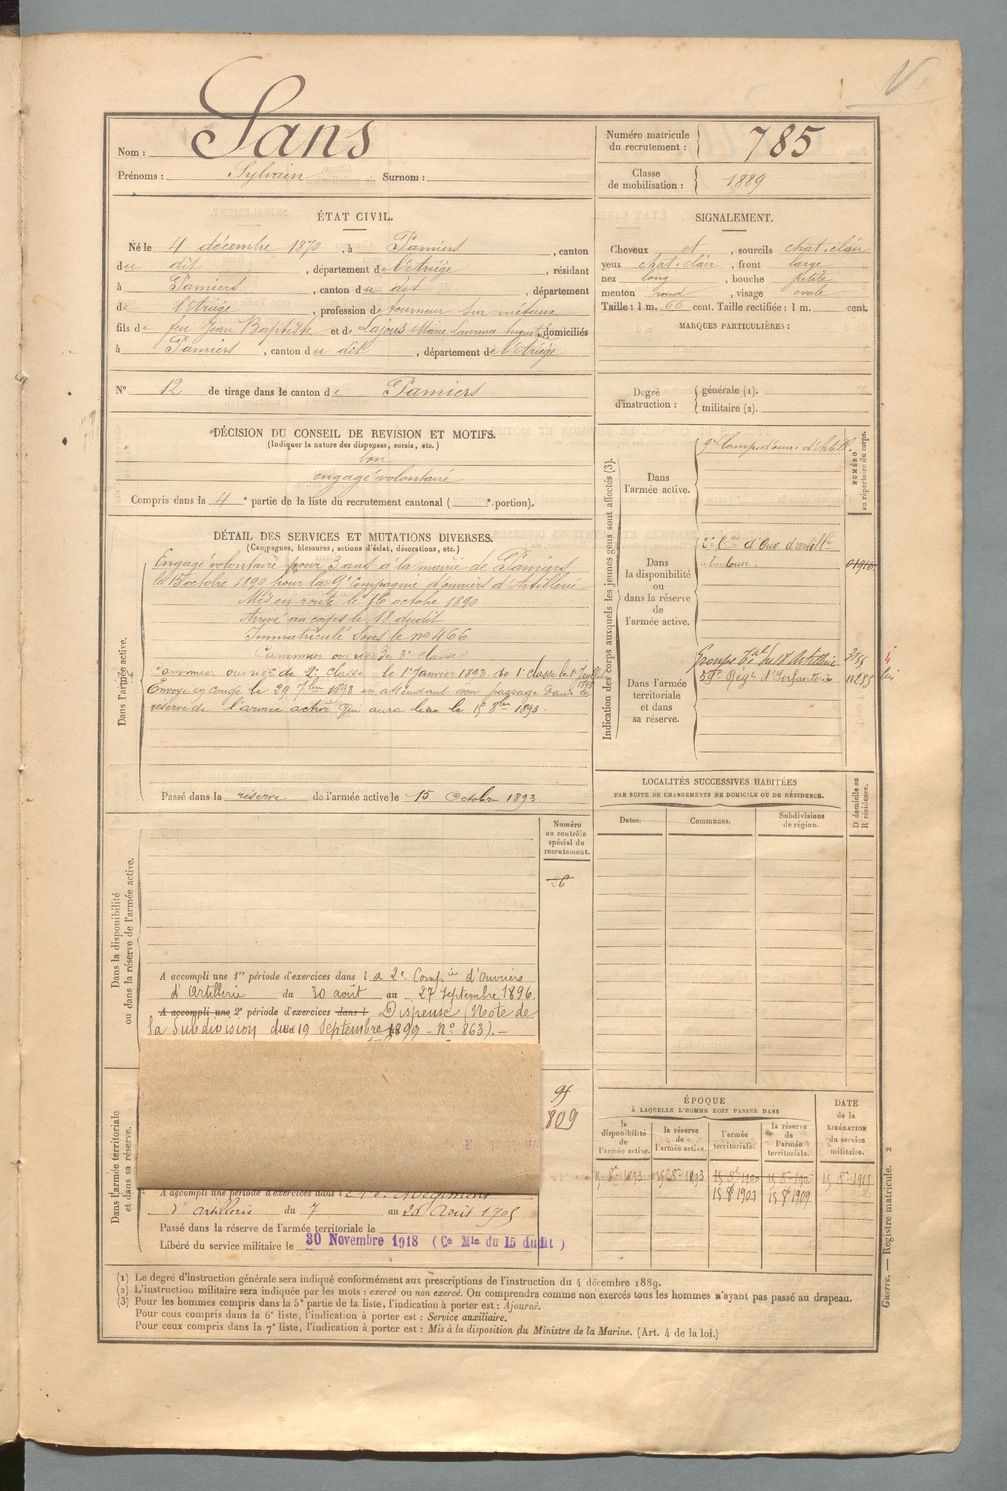 Nom : Sans
Prénoms : Sylvain Surnom :
Numéro matricule du recrutement : 785
Classe de mobilisation : 1889
ÉTAT CIVIL.
Né le 4 décembre 1870, à Pamiers, canton
du dit, département de l'Ariège, résidant
à Pamiers, canton du dit, département
de l'Ariège, profession de tourneur sur métaux
fils de feu Jean Baptiste et de Lajous Marie Laurence domiciliés
à Pamiers, canton du dit, département de l'Ariège
SIGNALEMENT.
Cheveux et, sourcils chat. clair
yeux chat. clair, front large
nez long, bouche petite
menton rond, visage ovale
Taille : 1 m. 66 cent. Taille rectifiée : 1 m. cent.
MARQUES PARTICULIÈRES :
N° 12 de tirage dans le canton de Pamiers
Degré d'instruction : générale (1).
militaire (2).
DÉCISION DU CONSEIL DE REVISION ET MOTIFS.
(Indiquer la nature des dispenses, sursis, etc.)
bon
engagé volontaire
Compris dans la 4e partie de la liste du recrutement cantonal ( e portion).
DÉTAIL DES SERVICES ET MUTATIONS DIVERSES.
(Campagnes, blessures, actions d'éclat, décorations, etc.)
Dans l'armée active.
Engagé volontaire pour 3 ans à la mairie de Pamiers,
le 15 octobre 1890 pour la 9e Compagnie d'ouvriers d'Artillerie
Mis en route le 16 octobre 1890
Arrivé au corps le 18 dudit
Immatriculé sous le n° 466
Canonnier ouvrier de 3e classe
Canonnier ouvrier de 2e classe le 1er Janvier 1893 de 1e classe le 1er
Envoyé en congé le 29 7bre 1893 en attendant son passage dans la
réserve de l'armée active qui aura lieu le 15 8bre 1893.
Passé dans la réserve de l'armée active le 15 Octobre 1893
Indication des corps auxquels les jeunes gens sont affectés (3).
NUMÉRO au répertoire du corps.
Dans l'armée active.
9e Comp. d'ouv. d'Artill.
Dans la disponibilité ou dans la réserve de l'armée active.
2e Cie d'Ouv. d'artillie
à Toulouse.
Dans l'armée territoriale et dans sa réserve.
Groupe du 18e Artillerie
59e Régt d'Infanterie
LOCALITÉS SUCCESSIVES HABITÉES
PAR SUITE DE CHANGEMENTS DE DOMICILE OU DE RÉSIDENCE.
Dates.
Communes.
Subdivisions de région.
D domicile ou R résidence.
Dans la disponibilité ou dans la réserve de l'armée active.
Numéro au contrôle spécial du recrutement.
A accompli une 1re période d'exercices dans la 2e Compie d'Ouvriers
d'Artillerie du 30 août au 27 Septembre 1896.
A accompli une 2e période d'exercices dans l Dispensé (Note de
la Subdivision du 19 Septembre 1899 - N° 863). -
Dans l'armée territoriale et dans sa réserve.
95
809
A accompli une période d'exercices dans le Régiment
d'Artillerie du 7 au Août 1905
Passé dans la réserve de l'armée territoriale le
Libéré du service militaire le 30 Novembre 1918 (Ce Mle du 15 dudit)
ÉPOQUE
À LAQUELLE L'HOMME DOIT PASSER DANS
la disponibilité de l'armée active.
la réserve de l'armée active.
l'armée territoriale.
la réserve de l'armée territoriale.
DATE de la LIBÉRATION du service militaire.
15 8bre 1893
15 8bre 1893
15 8e 1903
15 8e 1909
15 8e 1915
(1) Le degré d'instruction générale sera indiqué conformément aux prescriptions de l'instruction du 4 décembre 1889.
(2) L'instruction militaire sera indiquée par les mots : exercé ou non exercé. On comprendra comme non exercés tous les hommes n'ayant pas passé au drapeau.
(3) Pour les hommes compris dans la 5e partie de la liste, l'indication à porter est : Ajourné.
Pour ceux compris dans la 6e liste, l'indication à porter est : Service auxiliaire.
Pour ceux compris dans la 7e liste, l'indication à porter est : Mis à la disposition du Ministre de la Marine. (Art. 4 de la loi.)
Guerre. — Registre matricule. 2